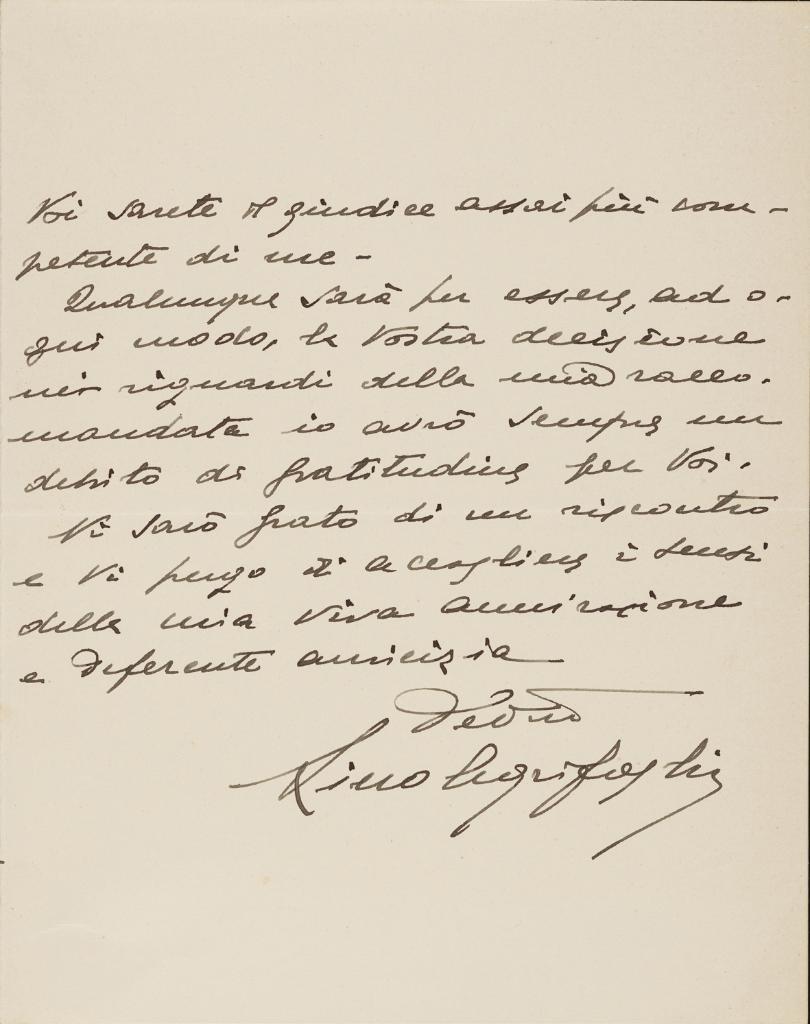 Voi sarete il giudice assai più com-
petente di me -
Qualunque sarà per essere, ad o-
gni modo, la Vostra decisione
nei riguardi della mia racco-
mandata io avrò sempre un
debito di gratitudine per Voi.
Vi sarò grato di un riscontro
e Vi prego di accogliere i sensi
della mia viva ammirazione
e deferente amicizia
Dev.mo
Nino